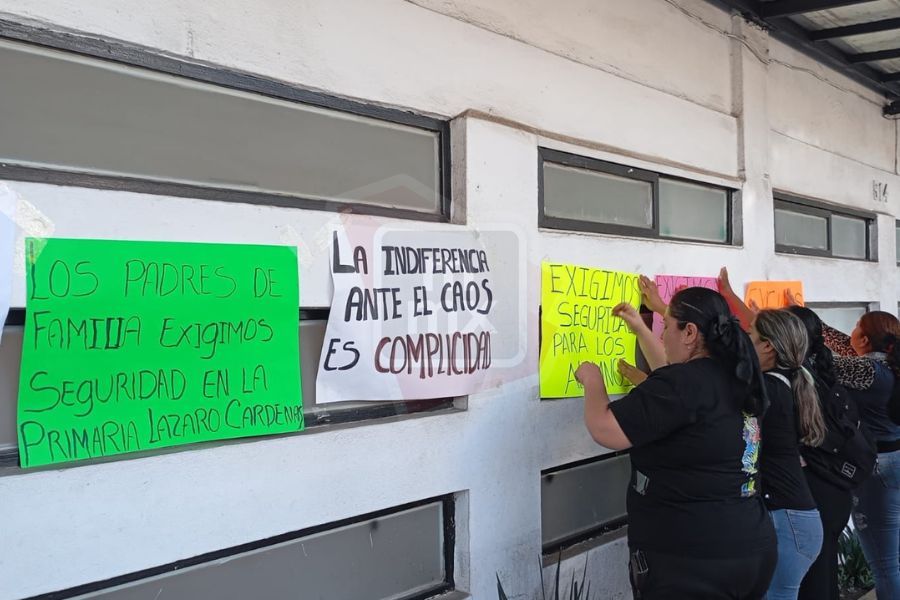 LOS PADRES DE
FAMILIA EXIGIMOS
SEGURIDAD EN LA
PRIMARIA LAZARO CARDENAS
LA INDIFERENCIA
ANTE EL CAOS
ES COMPLICIDAD
EXIGIMOS
SEGURIDAD
PARA LOS
514